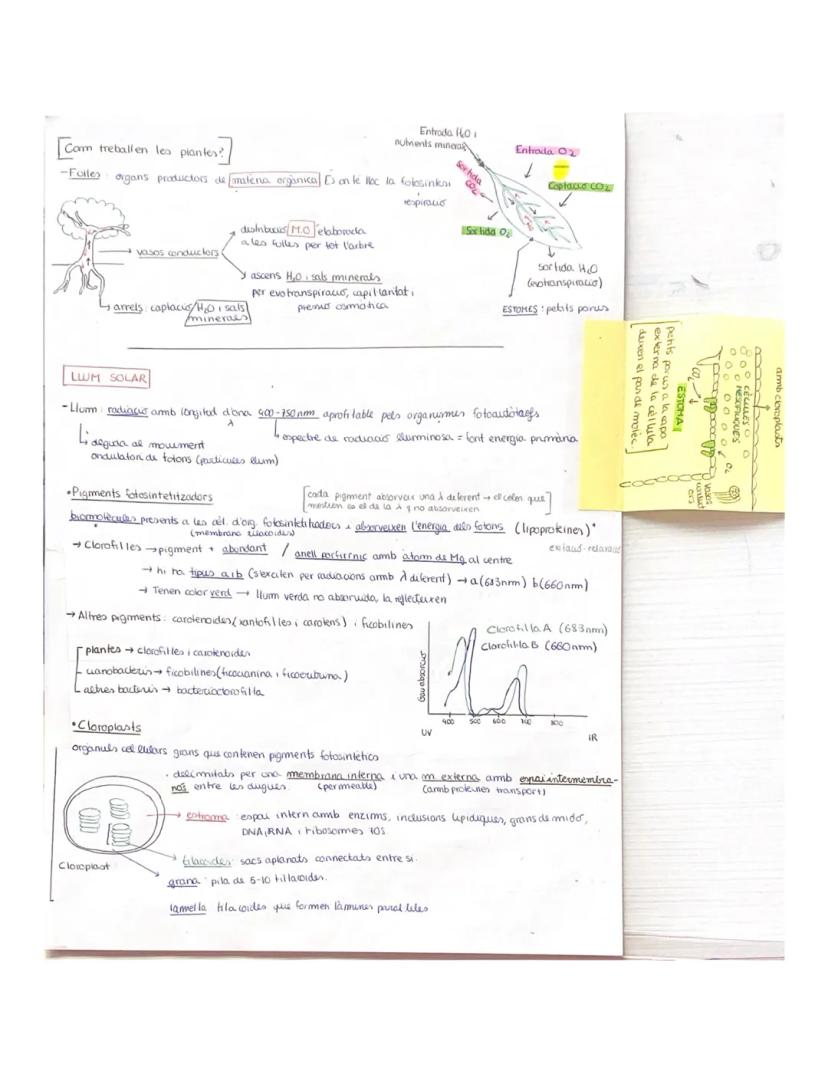 Com treballen les plantes?
-Folles: organs productors de matèria orgànica És on té lloc la fotosíntesi
respiració
vasos conductors
distribució M.O elaborada
a les fulles per tot l'arbre
ascens H₂O i sals minerals
per evotranspiració, capil·laritat i
pressió osmòtica
arrels: captació H₂O i sals
minerals
Entrada H₂O i
nutrients minerals
Sortida
CO₂
Entrada O₂
Captació CO₂
Sortida O₂
Sortida H₂O
(evotranspiració)
ESTOMES: petits porus
amb cloroplasts
CÈL·LULES
MESOFÍL·LIQUES
O₂
vasos
conduct
ors
CO₂
ESTOMA
petits porus a la capa
externa de la cèl·lula
deixen el pas de molèc.
LLUM SOLAR
-Llum: radiació amb longitud d'ona 400-750nm aprofitable pels organismes fotoautòtrofs
λ
deguda al moviment
ondulatori de fotons (partícules llum)
espectre de radiació lluminosa = font energia primària
•Pigments fotosintetitzadors
cada pigment absorveix una λ diferent → el color que
mostren és el de la λ q no absorveixen
biomolècules presents a les cèl. d'org. fotosintetitzadors i absorveixen l'energia dels fotons (lipoproteïnes)*
(membrana tilacoides)
excitació-relaxació
→ Clorofil·les → pigment + abundant / anell porfirínic amb àtom de Mg al centre
→ hi ha tipus a i b (s'exciten per radiacions amb λ diferent) → a(683nm) b(660nm)
→ Tenen color verd → llum verda no absorvida, la reflecteixen
→ Altres pigments: carotenoides (xantofil·les i carotens) i ficobilines
plantes → clorofil·les i carotenoides
cianobacteris → ficobilines (ficocianina i ficoeritrina)
altres bacteris → bacterioclorofil·la
Clorofil·la A (683nm)
Clorofil·la B (660nm)
Grau absorció
400 500 600 700 800
UV IR
•Cloroplasts
orgànuls cel·lulars grans que contenen pigments fotosintètics
· delimitats per una membrana interna i una m externa amb espai intermembra-
nós entre les dugues. (permeable) (amb proteïnes transport)
estroma: espai intern amb enzims, inclusions lipídiques, grans de midó,
DNA, RNA i ribosomes 70S.
tilacoides: sacs aplanats connectats entre si.
Cloroplast
grana: pila de 5-10 til·lacoides.
lamel·la tilacoides que formen làmines paral·leles